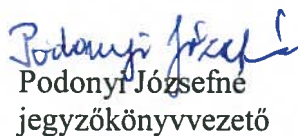 Podonyi Józsefné
Podonyi Józsefné
jegyzőkönyvvezető